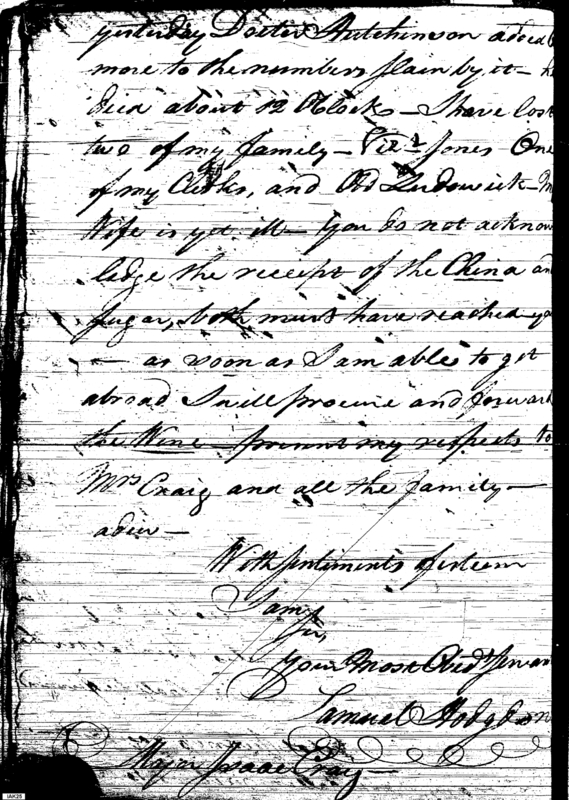 yesterday Doctor Hutchinson added
more to the numbers slain by it — he
died about 12 OClock — I have lost
two of my family — Vizt Jones One
of my Clerks, and Old Ludowick — My
Wife is yet ill — You do not acknow
ledge the receipt of the China and
Sugar, both must have reached yo
— as soon as I am able to get
abroad I will procure and forward
the Wine — present my respects to
Mrs Craig and all the family —
adieu —
With sentiments of esteem
I am
Sir,
Your Most Obedt servan
Samuel Hodgdon
Major Isaac Craig —
IAK25